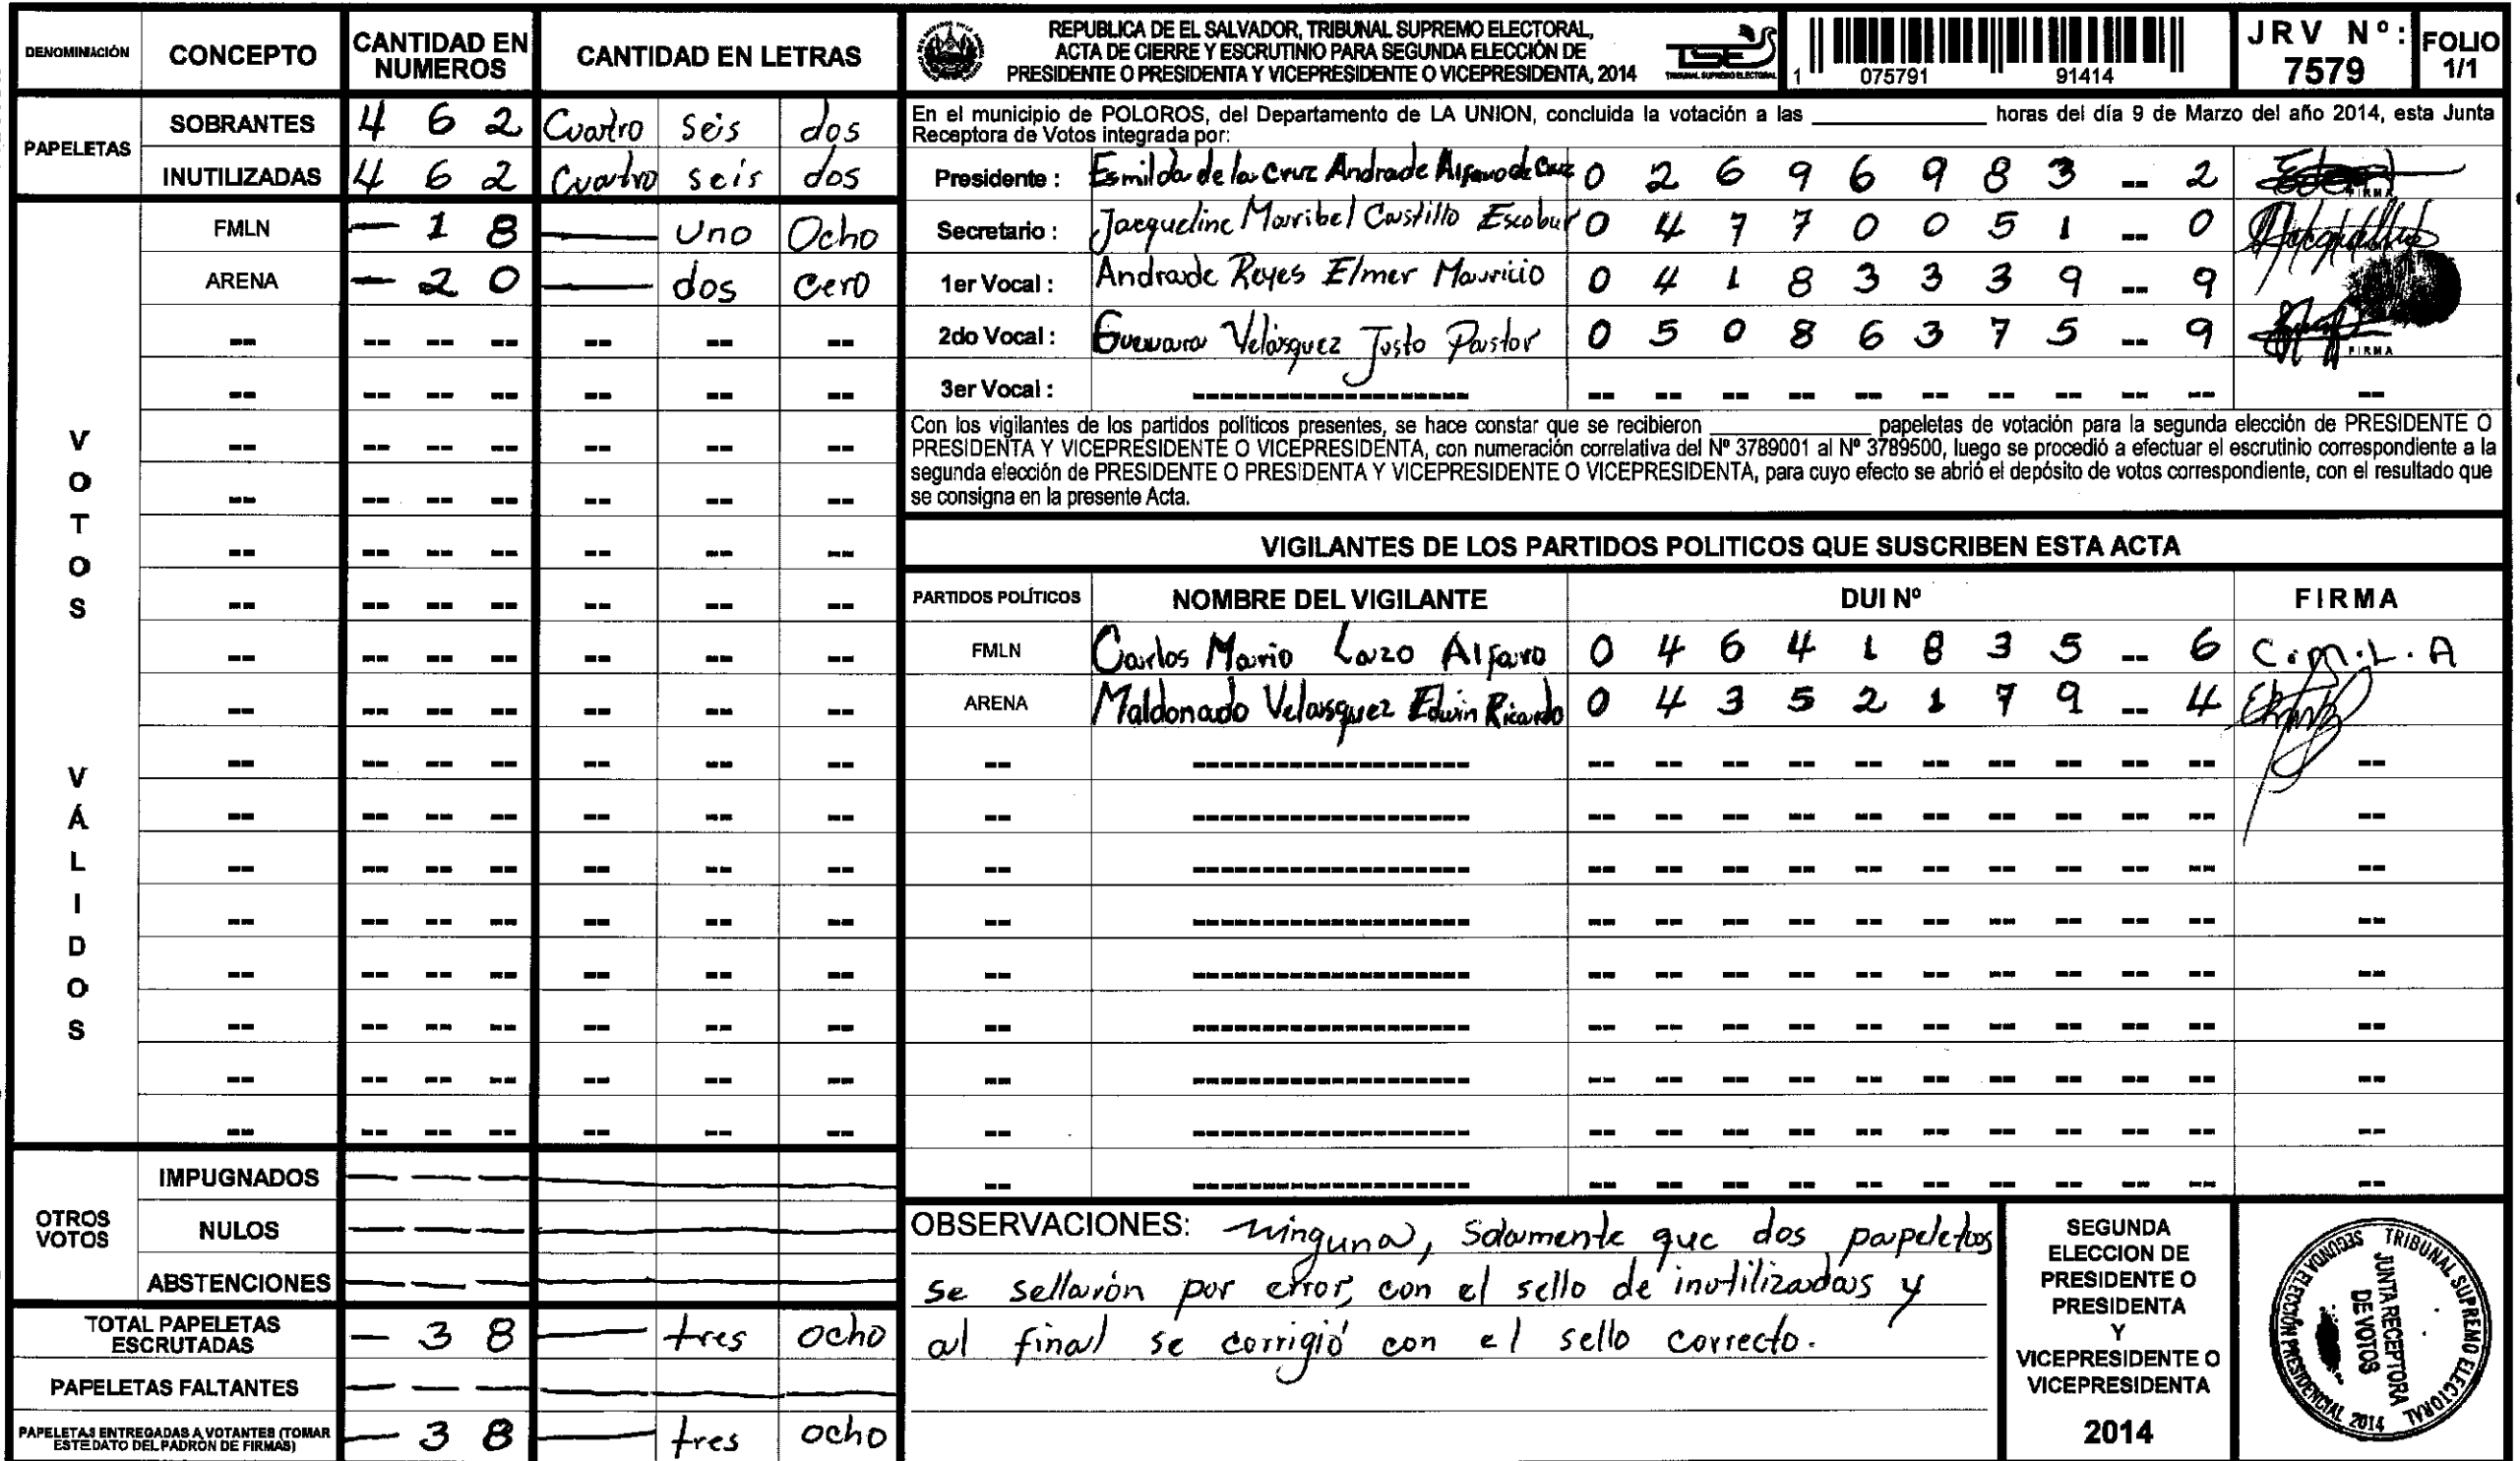 DENOMINACIÓN CONCEPTO CANTIDAD EN NUMEROS CANTIDAD EN LETRAS
PAPELETAS
SOBRANTES 4 6 2 Cuatro seis dos
INUTILIZADAS 4 6 2 Cuatro seis dos
VOTOS VÁLIDOS
FMLN — 1 8 — Uno Ocho
ARENA — 2 0 — dos Cero
OTROS VOTOS
IMPUGNADOS — — —
NULOS — — —
ABSTENCIONES — — —
TOTAL PAPELETAS ESCRUTADAS — 3 8 — tres ocho
PAPELETAS FALTANTES — — —
PAPELETAS ENTREGADAS A VOTANTES (TOMAR ESTE DATO DEL PADRON DE FIRMAS) — 3 8 — tres ocho
REPUBLICA DE EL SALVADOR, TRIBUNAL SUPREMO ELECTORAL,
ACTA DE CIERRE Y ESCRUTINIO PARA SEGUNDA ELECCIÓN DE
PRESIDENTE O PRESIDENTA Y VICEPRESIDENTE O VICEPRESIDENTA, 2014
TSE
TRIBUNAL SUPREMO ELECTORAL
1 075791 91414
JRV Nº: 7579
FOLIO 1/1
En el municipio de POLOROS, del Departamento de LA UNION, concluida la votación a las ____________ horas del día 9 de Marzo del año 2014, esta Junta
Receptora de Votos integrada por:
Presidente : Esmilda de la Cruz Andrade Alfaro de Cruz 0 2 6 9 6 9 8 3 -- 2
Secretario : Jacqueline Maribel Castillo Escobar 0 4 7 7 0 0 5 1 -- 0
1er Vocal : Andrade Reyes Elmer Mauricio 0 4 1 8 3 3 3 9 -- 9
2do Vocal : Guevara Velásquez Justo Pastor 0 5 0 8 6 3 7 5 -- 9
FIRMA
3er Vocal : --------------------
Con los vigilantes de los partidos políticos presentes, se hace constar que se recibieron ____________ papeletas de votación para la segunda elección de PRESIDENTE O
PRESIDENTA Y VICEPRESIDENTE O VICEPRESIDENTA, con numeración correlativa del Nº 3789001 al Nº 3789500, luego se procedió a efectuar el escrutinio correspondiente a la
segunda elección de PRESIDENTE O PRESIDENTA Y VICEPRESIDENTE O VICEPRESIDENTA, para cuyo efecto se abrió el depósito de votos correspondiente, con el resultado que
se consigna en la presente Acta.
VIGILANTES DE LOS PARTIDOS POLITICOS QUE SUSCRIBEN ESTA ACTA
PARTIDOS POLÍTICOS NOMBRE DEL VIGILANTE DUI Nº FIRMA
FMLN Carlos Mario Lazo Alfaro 0 4 6 4 1 8 3 5 -- 6 C.M.L.A
ARENA Maldonado Velasquez Edwin Ricardo 0 4 3 5 2 1 7 9 -- 4
OBSERVACIONES: ninguna, Solamente que dos papeletas
se sellarón por error, con el sello de inutilizadas y
al final se corrigió con el sello correcto.
SEGUNDA
ELECCION DE
PRESIDENTE O
PRESIDENTA
Y
VICEPRESIDENTE O
VICEPRESIDENTA
2014
TRIBUNAL SUPREMO ELECTORAL
JUNTA RECEPTORA
DE VOTOS
SEGUNDA ELECCIÓN PRESIDENCIAL 2014